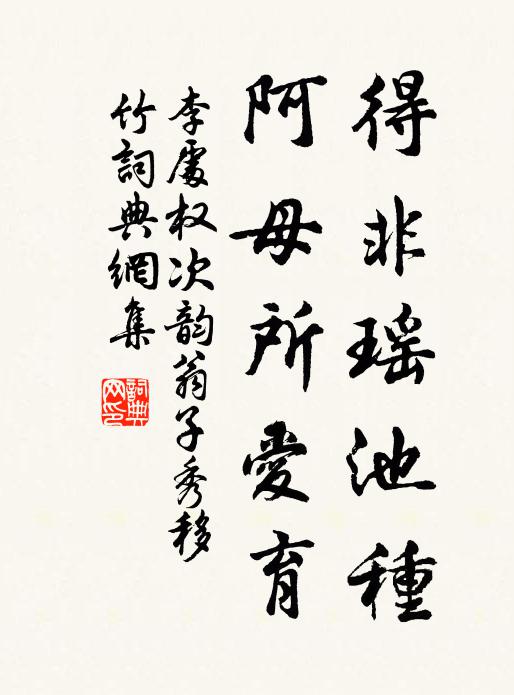 得非瑤池種
阿母所愛育
李處权次韵翁子秀移
竹詞典網集
詞典网印